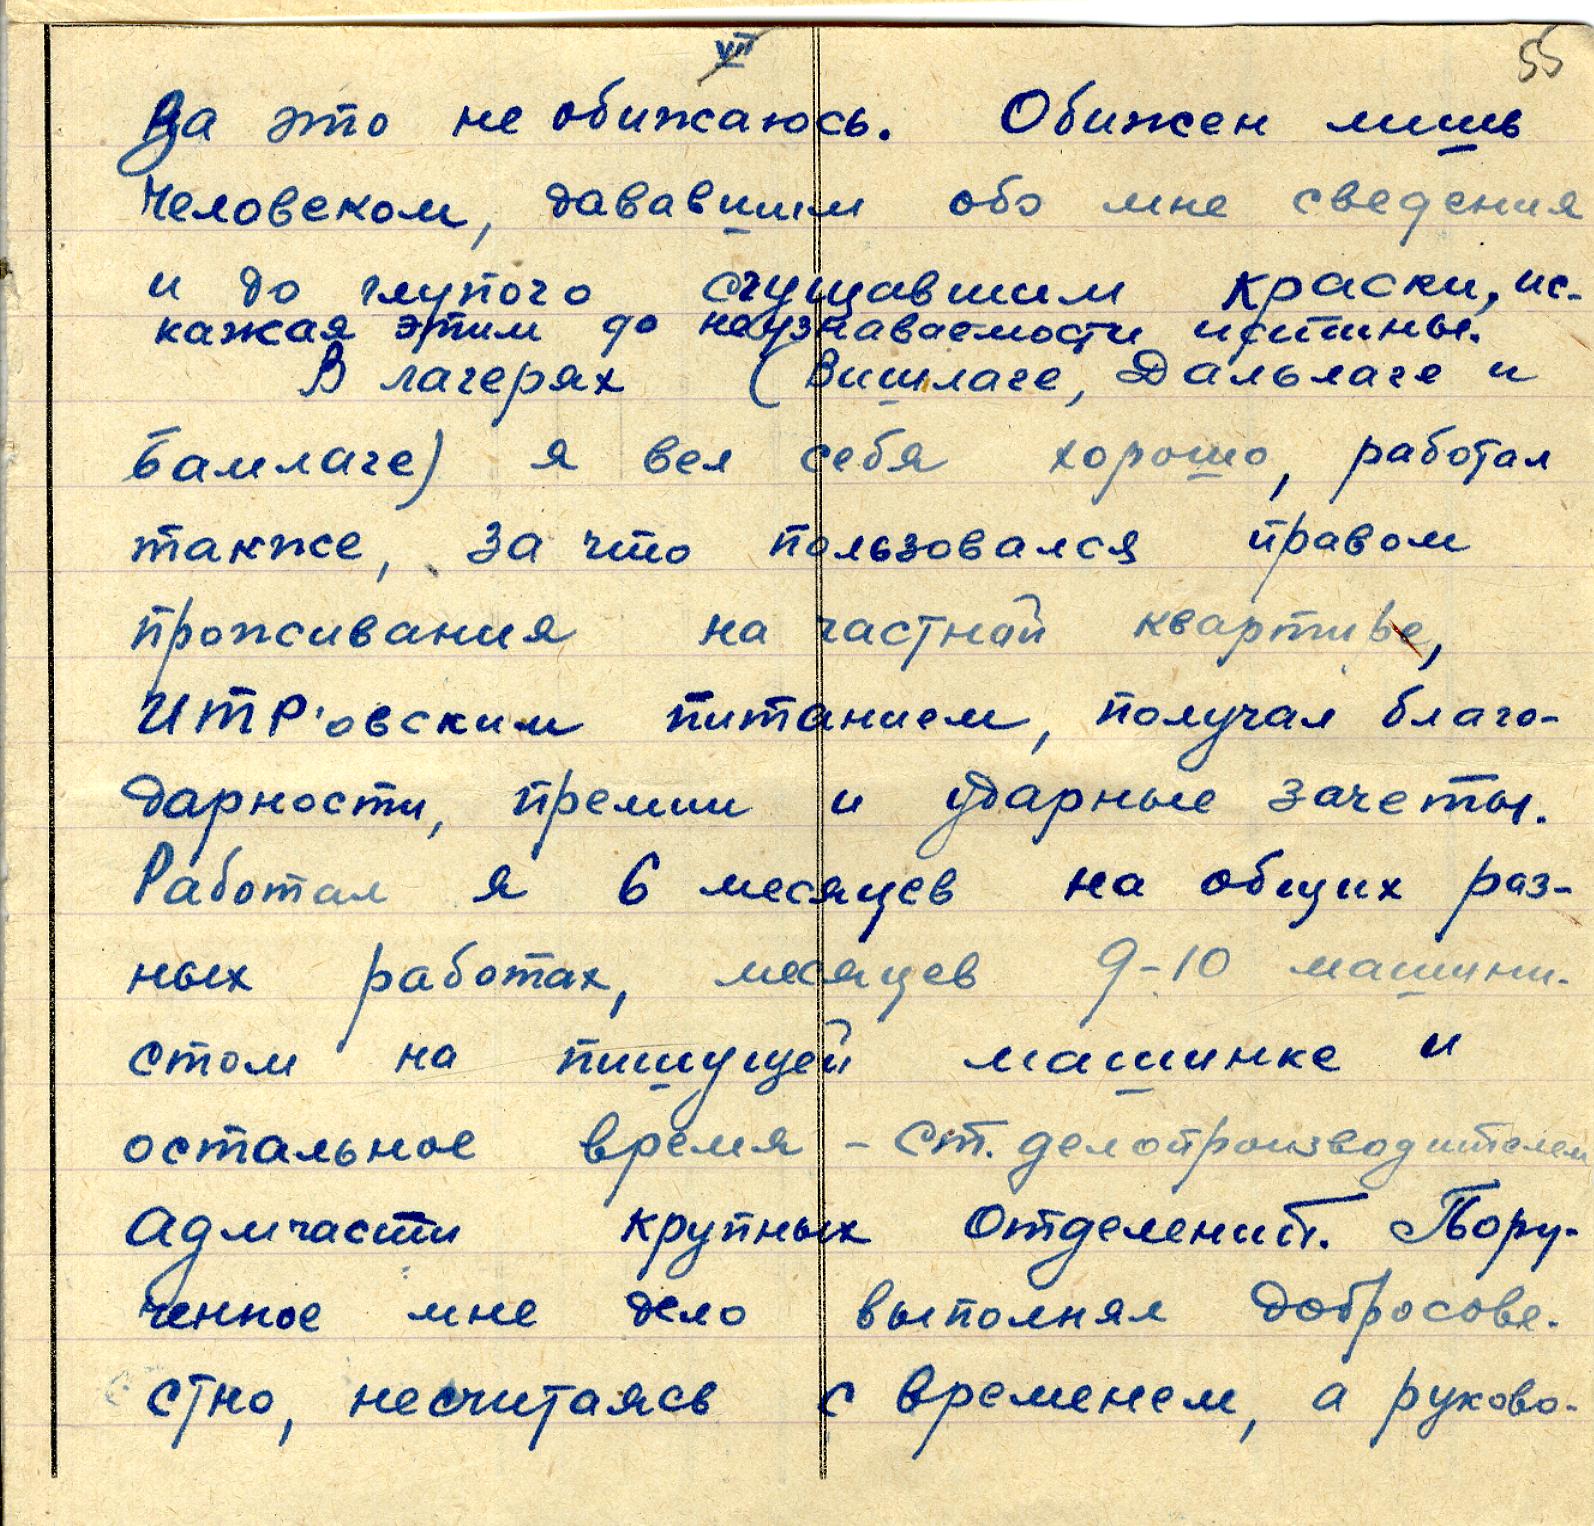 VII
55
За это не обижаюсь. Обижен лишь
человеком, дававшим обо мне сведения
и до глупого сгущавшим краски, ис-
кажая этим до неузнаваемости истины.
В лагерях (Вишлаге, Дальлаге и
Бамлаге) я вел себя хорошо, работал
также, за что пользовался правом
проживания на частной квартире,
ИТР'овским питанием, получал благо-
дарности, премии и ударные зачеты.
Работал я 6 месяцев на общих раз-
ных работах, месяцев 9-10 машини-
стом на пишущей машинке и
остальное время - ст. делопроизводителем
Адмчасти крупных Отделений. Пору-
ченное мне дело выполнял добросове-
стно, несчитаясь с временем, а руково-